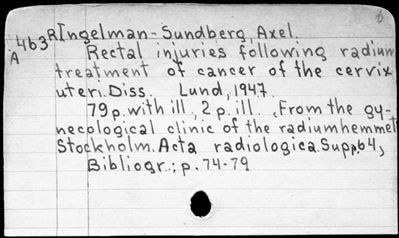 A463R Ingelman-Sundberg, Axel.
Rectal injuries following radium
treatment of cancer of the cervix
uteri. Diss. Lund, 1947.
79 p. with ill., 2 p. ill. (From the gy-
necological clinic of the radiumhemmet
Stockholm. Acta radiologica. Supp. 64,
Bibliogr.: p. 74-79